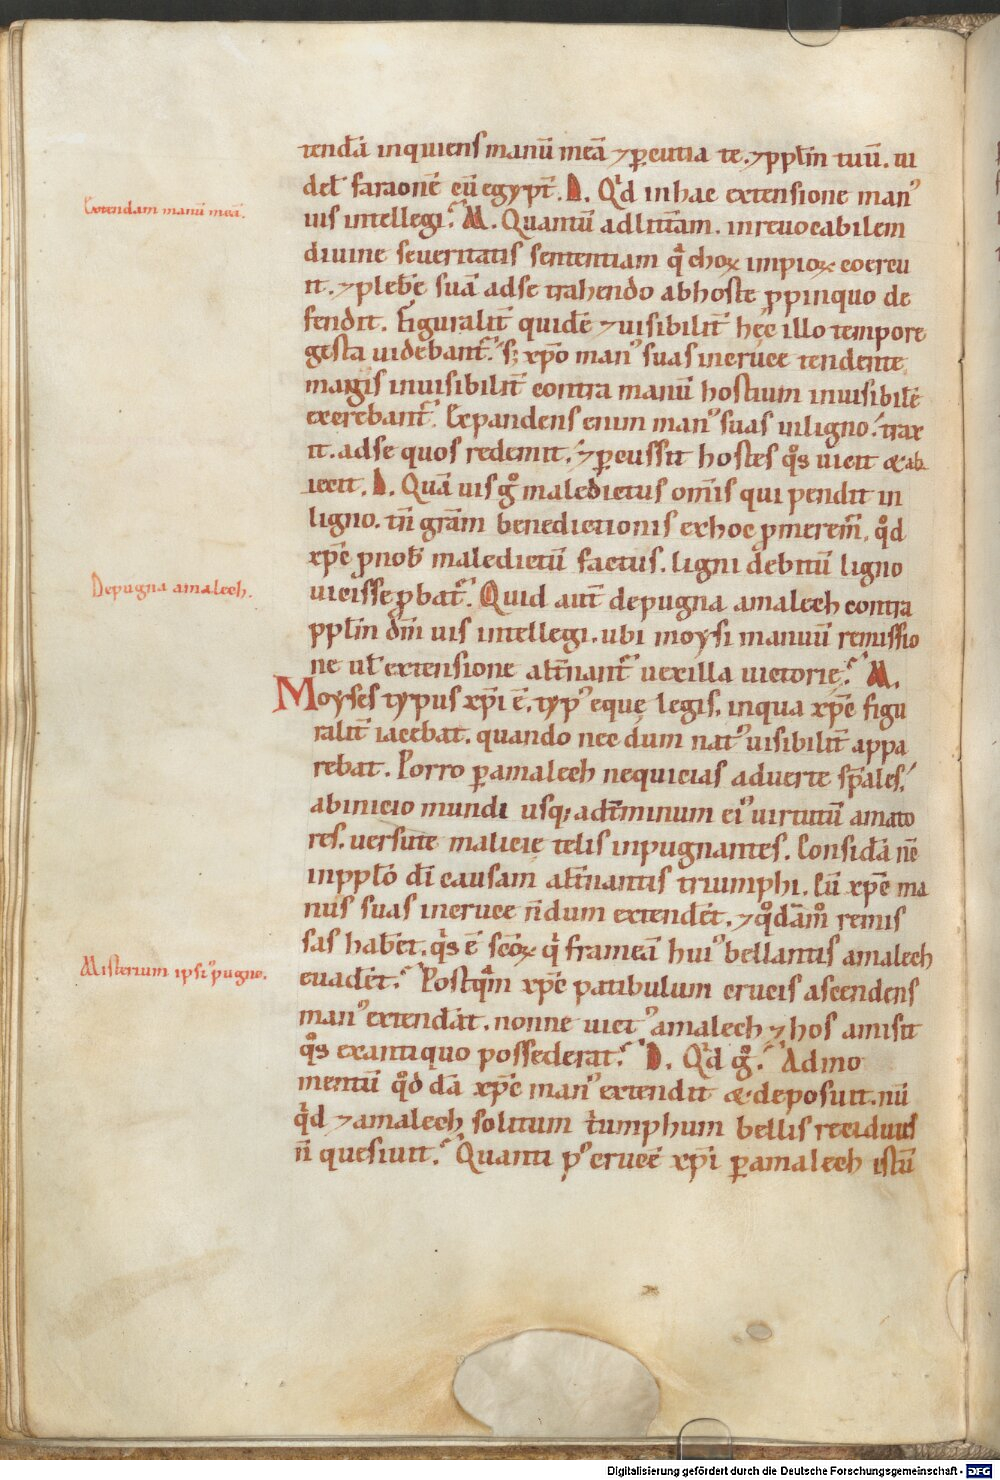 tendā inquiens manū meā ⁊ ꝑcutiā te, ⁊ pplm̄ tuū. ui
delꝰ faraonē eū egypt̄. D. Qͥd in hac extensione manꝰ
Extendam manū meā.
uis intellegi? M. Quantū ad litt̄am. inreuocabilem
diuine seueritatis sententiam qͣ choꝝ impioꝝ coercu
it. ⁊ plebē suā ad se trahendo ab hoste ꝓpinquo de
fendit. Figuralit̄ quidē ⁊ uisibilit̄ hęc illo tempore
gesta uidebant᷑. s; xp̄o manꝰ suas in cruce tendente
magis inuisibilit̄ contra manū hostium inuisibilē
exerebant᷑. Expandens enim manꝰ suas in ligno. trax
it. ad se quos redemit. ⁊ ꝑcussit hostes qͦs uicit & ab
iecit. D. Quā uis gͦ maledictus om̄is qui pendit in
ligno. tn̄ gr̄am benedictionis ex hoc ꝓmerem̄, qͦd
xp̄c ꝓ nob̄ maledictū factus. ligni debitū ligno
Depugna amalech.
uicisse ꝓbat᷑. Quid aut̄ de pugna amalech contra
pplm̄ dn̄i uis intellegi. ubi moysi manuū remissio
ne ul̄ extensione alt̄nant᷑ uexilla uictorię? M.
Moyses typus xp̄i ē. typꝰ eque legis. in qua xp̄c figu
ralit̄ iacebat. quando nec dum natꝰ uisibilit̄ appa
rebat. Porro ꝑ amalech nequicias aduerte sp̄ales.
ab inicio mundi usq; ad t̄minum eiꝰ uirtutū amato
res. uersute malicię telis inpugnantes. Considā nē
in pplo dī causam alt̄nantis triumphi. Cū xp̄c ma
nus suas in cruce n̄dum extendēt. ⁊ qͦdāmͦ remis
sas habēt. qͥs ē scōꝝ qͥ frameā huiꝰ bellantis amalech
Misterium ipsiꝰ pugne.
euadēt? Postqͣm xp̄c patibulum crucis ascendens
manꝰ extendāt. nonne uictꝰ amalech ⁊ hos amisit
qͦs ex antiquo possederat? D. Qͥd gͦ? Ad mo
mentū qͦd dā xp̄c manꝰ extendit & deposuit. nū
qͥd ⁊ amalech solitum tͥumphum bellis recidiuis
n̄ quesiuit? Quanti pꝰ crucē xp̄i ꝑ amalech istū
Digitalisierung gefördert durch die Deutsche Forschungsgemeinschaft - DFG